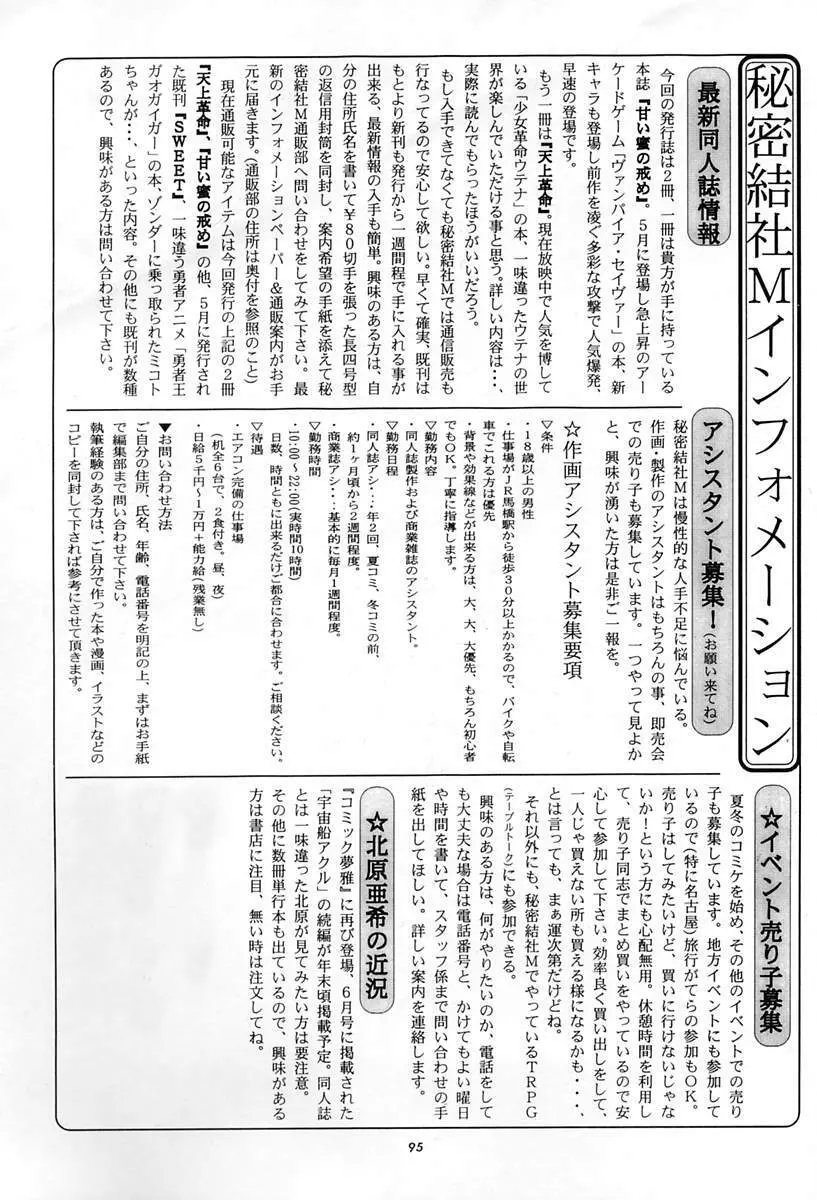 秘密結社Mインフォメーション
最新同人誌情報
今回の発行誌は2冊、一冊は貴方が手に持っている
本誌『甘い蜜の戒め』。5月に登場し急上昇のアー
ケードゲーム「ヴァンパイア・セイヴァー」の本、新
キャラも登場し前作を凌ぐ多彩な攻撃で人気爆発、
早速の登場です。
もう一冊は『天上革命』。現在放映中で人気を博して
いる「少女革命ウテナ」の本、一味違ったウテナの世
界が楽しんでいただける事と思う。詳しい内容は・・、
実際に読んでもらったほうがいいだろう。
もし入手できてなくても秘密結社Mでは通信販売も
行なってるので安心して欲しい。早くて確実、既刊は
もとより新刊も発行から一週間程で手に入れる事が
出来る、最新情報の入手も簡単。興味のある方は、自
分の住所氏名を書いて￥80切手を張った長四号型
の返信用封筒を同封し、案内希望の手紙を添えて秘
密結社M通販部へ問い合わせをしてみて下さい。最
新のインフォメーションペーパー&通販案内がお手
元に届きます。(通販部の住所は奥付を参照のこと)
現在通販可能なアイテムは今回発行の上記の2冊
『天上革命』、『甘い蜜の戒め』の他、5月に発行され
た既刊『SWEET』、一味違う勇者アニメ「勇者王
ガオガイガー」の本、ゾンダーに乗っ取られたミコト
ちゃんが・・、といった内容。その他にも既刊が数種
あるので、興味がある方は問い合わせて下さい。
アシスタント募集！(お願い来てね)
秘密結社Mは慢性的な人手不足に悩んでいる。
作画・製作のアシスタントはもちろんの事、即売会
での売り子も募集しています。一つやって見よか
と、興味が湧いた方は是非ご一報を。
☆作画アシスタント募集要項
▽条件
・18歳以上の男性
・仕事場がJR馬橋駅から徒歩30分以上かかるので、バイクや自転
車でこれる方は優先
・背景や効果線などが出来る方は、大、大、大優先、もちろん初心者
でもOK。丁寧に指導します。
▽勤務内容
・同人誌製作および商業雑誌のアシスタント。
▽勤務日程
・同人誌アシ・・・年2回、夏コミ、冬コミの前、
約1ヶ月頃から2週間程度。
・商業誌アシ・・・基本的に毎月1週間程度。
▽勤務時間
・10:00〜22:00(実時間10時間)
日数、時間ともに出来るだけご都合に合わせます。ご相談ください。
▽待遇
・エアコン完備の仕事場
(机全6台で、2食付き。昼、夜)
・日給5千円〜1万円+能力給(残業無し)
▼お問い合わせ方法
ご自分の住所、氏名、年齢、電話番号を明記の上、まずはお手紙
で編集部まで問い合わせて下さい。
執筆経験のある方は、ご自分で作った本や漫画、イラストなどの
コピーを同封して下されば参考にさせて頂きます。
☆イベント売り子募集
夏冬のコミケを始め、その他のイベントでの売り
子も募集しています。地方イベントにも参加して
いるので(特に名古屋)旅行がてらの参加もOK。
売り子はしてみたいけど、買いに行けないじゃな
いか！という方にも心配無用。休憩時間を利用し
て、売り子同志でまとめ買いをやっているので安
心して参加して下さい。効率良く買い出しをして、
一人じゃ買えない所も買える様になるかも・・・、
とは言っても、まぁ運次第だけどね。
それ以外にも、秘密結社MでやっているTRPG
(テーブルトーク)にも参加できる。
興味のある方は、何がやりたいのか、電話をして
も大丈夫な場合は電話番号と、かけてもよい曜日
や時間を書いて、スタッフ係まで問い合わせの手
紙を出してほしい。詳しい案内を連絡します。
☆北原亜希の近況
『コミック夢雅』に再び登場、6月号に掲載された
「宇宙船アクル」の続編が年末頃掲載予定。同人誌
とは一味違った北原が見てみたい方は要注意。
その他に数冊単行本も出ているので、興味がある
方は書店に注目、無い時は注文してね。
95